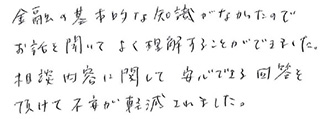 金融の基本的な知識がなかったので
お話を聞いてよく理解することができました。
相談内容に関して安心できる回答を
頂けて不安が軽減されました。